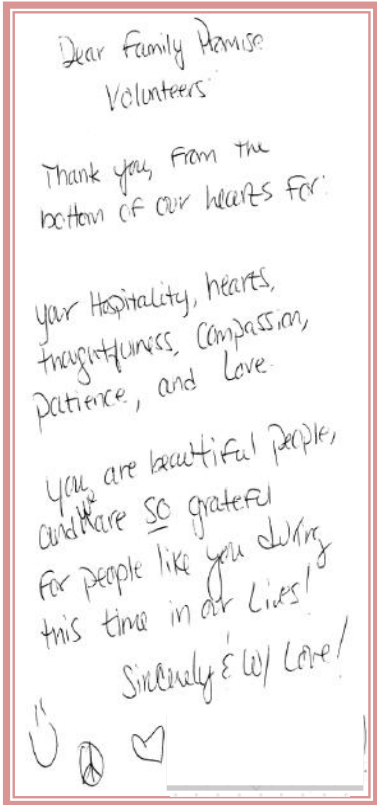 Dear Family Promise
Volunteers
Thank you, From the
bottom of our hearts For:
your Hospitality, hearts,
thoughtfulness, Compassion,
patience, and Love.
you are beautiful people,
and we are SO grateful
For people like you during
this time in our Lives!
Sincerely & w/ Love!